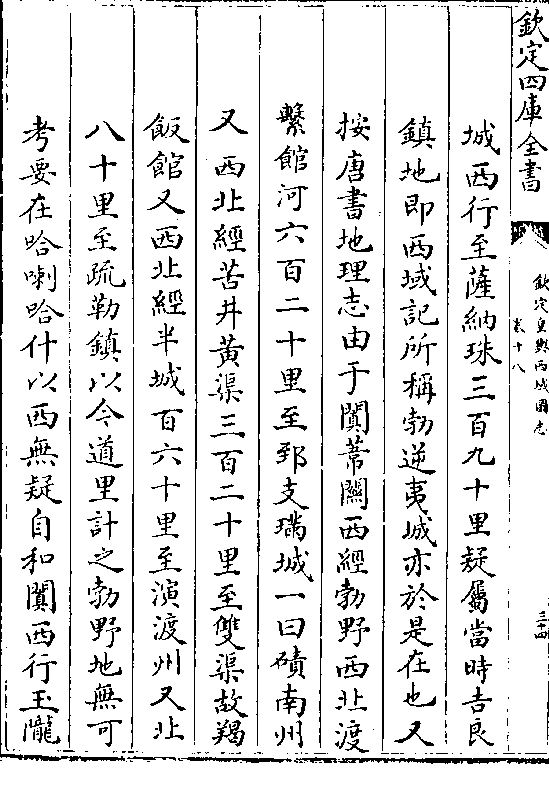 欽定四庫全書
欽定皇輿西域圖志
卷十八
三十四
城西行至薩納珠三百九十里疑屬當時吉良
鎮地即西域記所稱勃逆夷城亦於是在也又
按唐書地理志由于闐葦關西經勃野西北渡
繫館河六百二十里至郅支璊城一曰磧南州
又西北經苦井黃渠三百二十里至雙渠故羯
飯館又西北經半城百六十里至演渡州又北
八十里至疏勒鎮以今道里計之勃野地無可
考要在哈喇哈什以西無疑自和闐西行玉隴